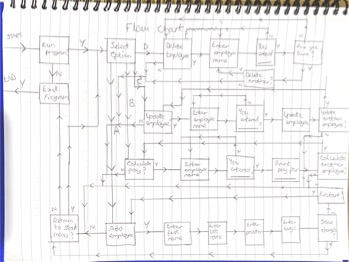 Flow Chart
START
Run
program
Y
Select
Option
D
Delete
Employee
Enter
employee
name
Delete another?
END
N
End
Program
B
A
Update
employee
Enter
employee
name
You
entered
Update
employee
Update
another
employee?
Calculate
pay?
Enter
employee
name
You
entered
Print
pay for
Calculate
another
employee?
Restart?
Return
to Start
menu?
N
Y
Add
Employee
Y
Enter
first
name
Enter
last
name
Enter
position
Enter
wage
Save